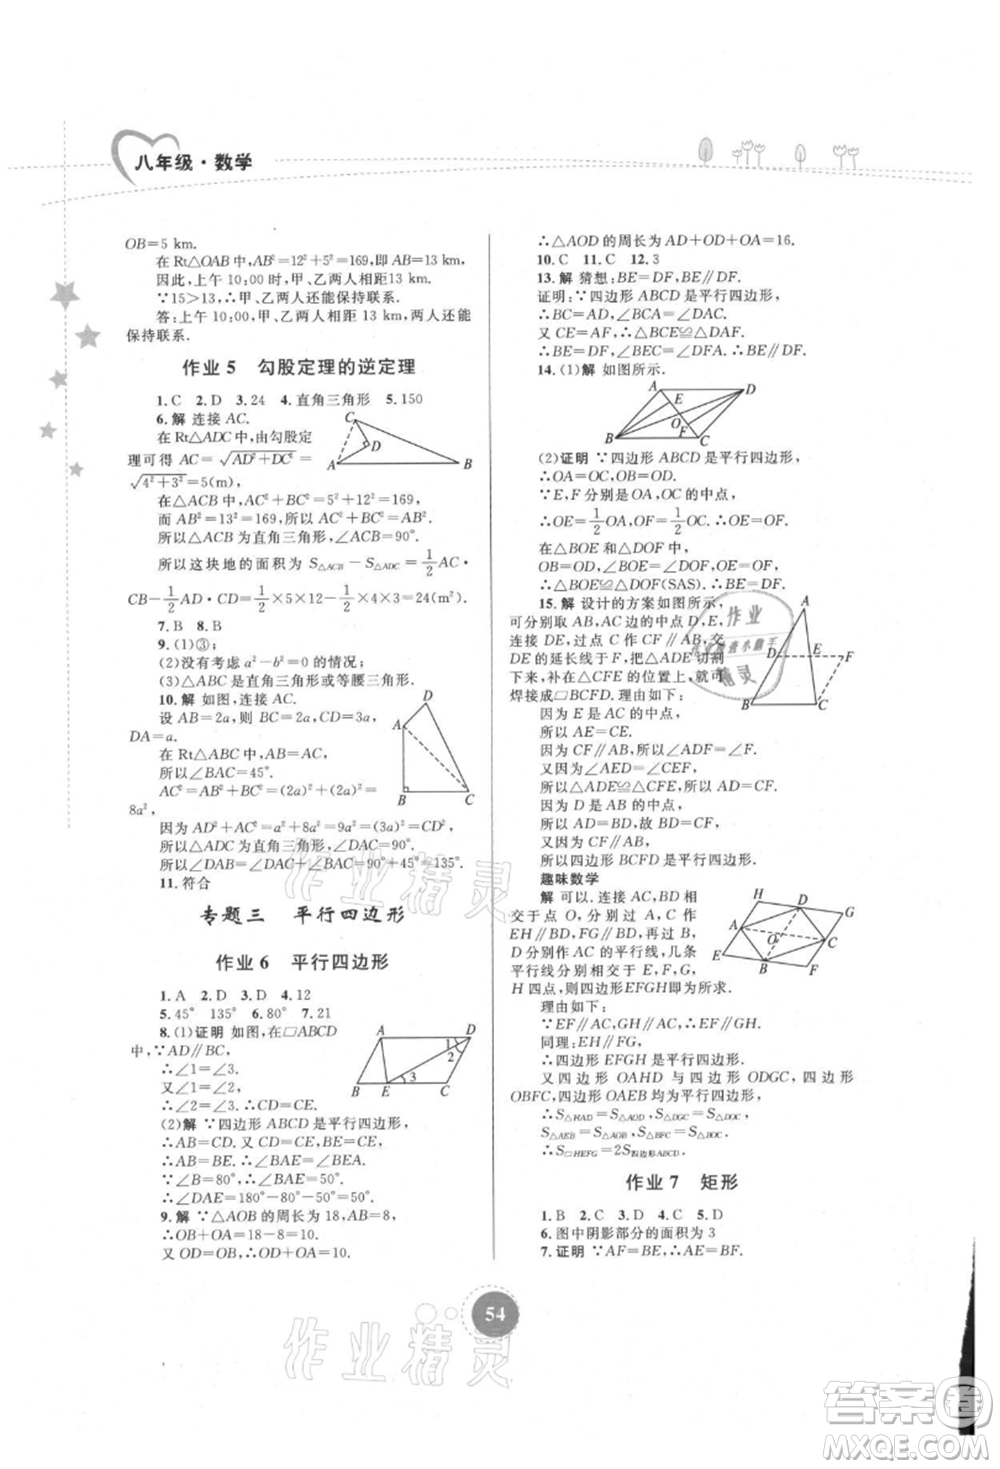 八年级·数学
OB=5 km.
在 Rt△OAB 中,AB²=12²+5²=169,即 AB=13 km.
因此,上午 10:00 时,甲、乙两人相距13 km.
∵15>13,∴甲、乙两人还能保持联系.
答:上午 10:00,甲、乙两人相距13 km,两人还能
保持联系.
作业 5 勾股定理的逆定理
1.C 2.D 3.24 4.直角三角形 5.150
6.解 连接 AC.
在 Rt△ADC 中,由勾股定
理可得 AC=√(AD²+DC²)=
√(4²+3²)=5(m),
C
D
A
B
在△ACB 中,AC²+BC²=5²+12²=169,
而 AB²=13²=169,所以 AC²+BC²=AB².
所以△ACB 为直角三角形,∠ACB=90°.
所以这块地的面积为 S△ACB-S△ADC=1/2 AC·
CB-1/2 AD·CD=1/2×5×12-1/2×4×3=24(m²).
7.B 8.B
9.(1)③;
(2)没有考虑 a²-b²=0 的情况;
(3)△ABC 是直角三角形或等腰三角形.
10.解 如图,连接AC.
设 AB=2a,则 BC=2a,CD=3a,
DA=a.
在 Rt△ABC 中,因为 AB=AC,
所以∠ABC=45°.
AC²=AB²+BC²=(2a)²+(2a)²=
8a².
D
A
B
C
因为 AD²+AC²=a²+8a²=9a²=(3a)²=CD²,
所以△ADC 为直角三角形,∠DAC=90°.
所以∠DAB=∠DAC+∠BAC=90°+45°=135°.
11.符合
专题三 平行四边形
作业 6 平行四边形
1.A 2.D 3.D 4.12
5.45° 135° 6.80° 7.21
8.(1)证明 如图,在□ABCD
中,∵AD∥BC,
∴∠1=∠3.
又∠1=∠2,
∴∠2=∠3.
A
D
1
2
3
B
E
C
∴∠1=∠2,∴CD=CE.
(2)解 ∵四边形 ABCD 是平行四边形,
∴AB=CD.又 CD=CE,BE=CE,
∴AB=BE,∴∠BAE=∠BEA.
∵∠B=80°,∴∠BAE=50°,
∴∠DAE=180°-50°-80°=50°.
9.解 ∵△AOB 的周长为 18,AB=8,
∴OB+OA=18-8=10.
又 OD=OB,∴OD+OA=10.
∴△AOD 的周长为 AD+OD+OA=16.
10.C 11.C 12.3
13.解 猜想:BE=DF,BE∥DF.
证明:∵四边形 ABCD 是平行四边形,
∴BC=AD,∠BCE=∠DAC.
又 CE=AF,∴△BCE≌△DAF.
∴BE=DF,∠BEC=∠DFA.
∴BE∥DF,即 BE∥DF,BE=DF.
14.(1)解 如图所示.
A
D
E
O
F
B
C
(2)证明 ∵四边形 ABCD 是平行四边形,
∴OA=OC,OB=OD.
∵E,F 分别是 OA,OC 的中点,
∴OE=1/2 OA,OF=1/2 OC.∴OE=OF.
在△BOE 和△DOF 中,
OB=OD,∠BOE=∠DOF,OE=OF,
∴△BOE≌△DOF(SAS).∴BE=DF.
15.解 设计的方案如图所示,
可分别取AB,AC 的中点D,E,
连接 DE,过点 C 作 CF∥AB,交
DE 的延长线于点 F,把△ADE 切割
下来,补在△CFE 的位置上,就可
焊接成□BCFD.理由如下:
A
D
E
F
B
C
因为 E 是 AC 的中点,
所以 AE=CE.
因为 CF∥AB,
所以∠ADE=∠F.
又因为∠AED=∠CEF,
所以△ADE≌△CFE,所以AD=CF.
因为 D 是 AB 的中点,
所以AD=BD,故 BD=CF.
又因为 CF∥AB,
所以四边形 BCFD 是平行四边形.
趣味数学
解 可以.连接 AC,BD 相
交于点 O,分别过 A,C 作
EH∥BD,FG∥BD,再过 B,
D 分别作 AC 的平行线,几条
平行线分别相交于 E,F,G,
H 四点,则四边形EFGH 即为所求.
H
D
G
A
O
C
E
B
F
理由如下:
∵EF∥AC,HG∥AC,∴EF∥HG.
同理:EH∥FG,∴四边形 EFGH 是平行四边形.
又四边形 OAHD 与四边形 ODGC,四边形
OBFC,四边形 OAEB 均为平行四边形,
∴S△HAD=S△AOD,S△DGC=S△DOC,
S△AEB=S△AOB,S△BFC=S△BOC,
∴S□HEFG=2S四边形ABCD.
作业 7 矩形
1.B 2.C 3.C 4.C 5.D
6.图中阴影部分的面积为 3
7.证明 ∵AF=BE,∴AE=BF.
54
作业精灵
作业精灵
作业
精灵
答案圈
MXQE.COM